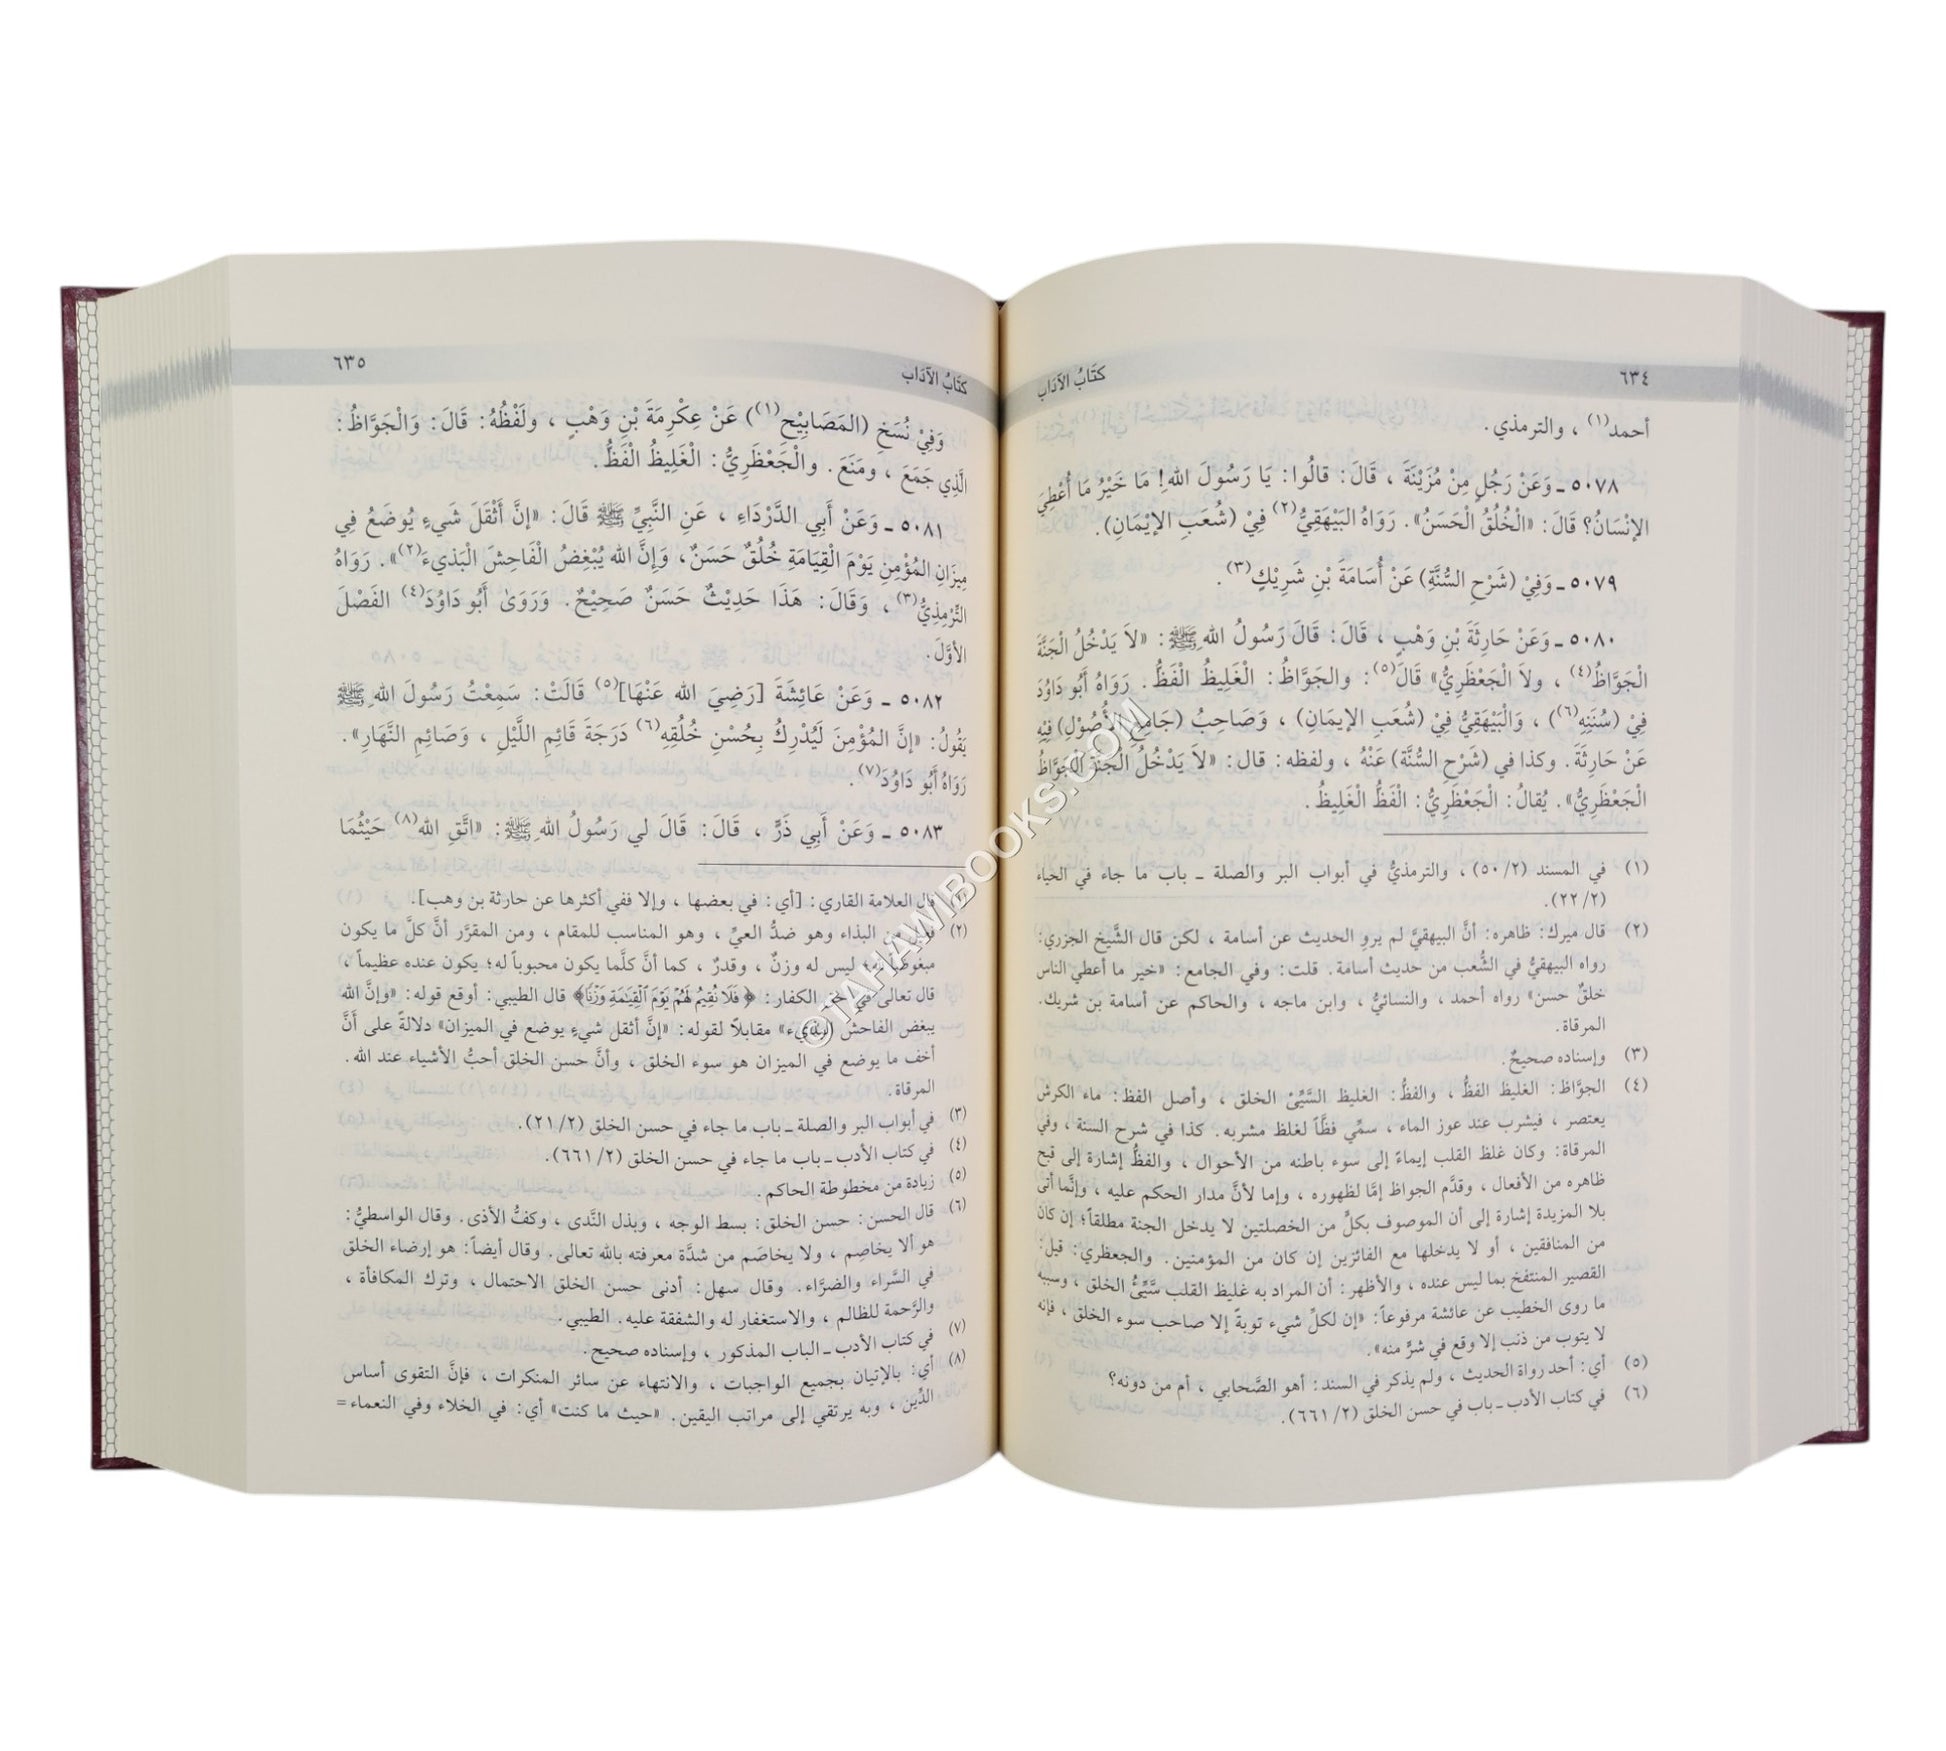 ٦٣٤
كتَابُ الآدَاب
أحمد(١) ، والترمذي.
٥٠٧٨ ـ وَعَنْ رَجُلٍ مِنْ مُزَيْنَةَ ، قَالَ: قالُوا: يَا رَسُولَ اللهِ! مَا خَيْرُ مَا أُعْطِيَ
الإنْسَانُ؟ قَالَ: «الْخُلُقُ الْحَسَنُ». رَوَاهُ البَيْهَقِيُّ(٢) فِيْ (شُعَبِ الإيْمَانِ).
٥٠٧٩ ـ وَفِيْ (شَرْحِ السُّنَّةِ) عَنْ أُسَامَةَ بْنِ شَرِيْكٍ(٣).
٥٠٨٠ ـ وَعَنْ حَارِثَةَ بْنِ وَهْبٍ ، قَالَ: قَالَ رَسُولُ اللهِ ﷺ: «لاَ يَدْخُلُ الْجَنَّةَ
الْجَوَّاظُ(٤) ، ولاَ الْجَعْظَرِيُّ» قَالَ(٥): والجَوَّاظُ: الْغَلِيظُ الْفَظُّ. رَوَاهُ أَبُو دَاوُدَ
فِيْ (سُنَنِهِ(٦)) ، وَالْبَيْهَقِيُّ فِيْ (شُعَبِ الإيمَانِ) ، وَصَاحِبُ (جَامِعِ الأُصُوْلِ) فِيْهِ
عَنْ حَارِثَةَ. وكذا في (شَرْحِ السُّنَّة) عَنْهُ ، ولفظه: قال: «لاَ يَدْخُلُ الْجَنَّةَ الْجَوَّاظُ
الْجَعْظَرِيُّ». يُقالُ: الْجَعْظَرِيُّ: الْفَظُّ الْغَلِيظُ.
(١) في المسند (٥٠/٢) ، والترمذيُّ في أبواب البر والصلة ـ باب ما جاء في الحياء
(٢٢/٢).
(٢) قال ميرك: ظاهره: أنَّ البيهقيَّ لم يروِ الحديث عن أسامة ، لكن قال الشَّيخ الجزري:
رواه البيهقيُّ في الشُّعب من حديث أسامة. قلت: وفي الجامع: «خير ما أعطي الناس
خلقٌ حسن» رواه أحمد ، والنسائيُّ ، وابن ماجه ، والحاكم عن أسامة بن شريك.
المرقاة.
(٣) وإسناده صحيحٌ.
(٤) الجوَّاظ: الغليظ الفظُّ ، والفظُّ: الغليظ السَّيِّئ الخلق ، وأصل الفظ: ماء الكرش
يعتصر ، فيشرب عند عوز الماء ، سمِّي فظَّاً لغلظ مشربه. كذا في شرح السنة ، وفي
المرقاة: وكان غلظ القلب إيماءً إلى سوء باطنه من الأحوال ، والفظُّ إشارة إلى قبح
ظاهره من الأفعال ، وقدَّم الجواظ إمَّا لظهوره ، وإما لأنَّ مدار الحكم عليه ، وإنَّما أتى
بلا المزيدة إشارة إلى أن الموصوف بكلٍّ من الخصلتين لا يدخل الجنة مطلقاً؛ إن كان
من المنافقين ، أو لا يدخلها مع الفائزين إن كان من المؤمنين. والجعظري: قيل:
القصير المنتفخ بما ليس عنده ، والأظهر: أن المراد به غليظ القلب سَّيِّئُ الخلق ، وسببه
ما روى الخطيب عن عائشة مرفوعاً: «إن لكلِّ شيء توبةً إلا صاحب سوء الخلق ، فإنه
لا يتوب من ذنب إلا وقع في شرٍّ منه».
(٥) أي: أحد رواة الحديث ، ولم يذكر في السند: أهو الصَّحابي ، أم من دونه؟
(٦) في كتاب الأدب ـ باب في حسن الخلق (٦٦١/٢).
كتَابُ الآدَاب
٦٣٥
وَفِيْ نُسَخِ (المَصَابِيْح(١)) عَنْ عِكْرِمَةَ بْنِ وَهْبٍ ، ولَفْظُهُ: قَالَ: وَالْجَوَّاظُ:
الَّذِي جَمَعَ ، ومَنَعَ. والْجَعْظَرِيُّ: الْغَلِيظُ الْفَظُّ.
٥٠٨١ ـ وَعَنْ أَبِي الدَّرْدَاءِ ، عَنِ النَّبِيِّ ﷺ قَالَ: «إنَّ أَثْقَلَ شَيءٍ يُوضَعُ فِي
مِيزَانِ المُؤْمِنِ يَوْمَ الْقِيَامَةِ خُلُقٌ حَسَنٌ، وَإِنَّ الله يُبْغِضُ الْفَاحِشَ الْبَذيءَ(٢)». رَوَاهُ
التِّرْمِذِيُّ(٣) ، وَقَالَ: هَذَا حَدِيْثٌ حَسَنٌ صَحِيْحٌ. وَرَوَىٰ أَبُو دَاوُدَ(٤) الفَصْلَ
الأوَّلَ.
٥٠٨٢ ـ وَعَنْ عَائِشَةَ [رَضِيَ الله عَنْهَا](٥) قَالَتْ: سَمِعْتُ رَسُولَ اللهِ ﷺ
يَقُولُ: «إنَّ المُؤْمِنَ لَيُدْرِكُ بِحُسْنِ خُلُقِهِ(٦) دَرَجَةَ قَائِمِ اللَّيْلِ ، وَصَائِمِ النَّهَارِ».
رَوَاهُ أَبُو دَاوُدَ(٧).
٥٠٨٣ ـ وَعَنْ أَبِي ذَرٍّ ، قَالَ: قَالَ لي رَسُولُ اللهِ ﷺ: «اتَّقِ الله(٨) حَيْثُمَا
(١) قال العلامة القاري: [أي: في بعضها ، وإلا ففي أكثرها عن حارثة بن وهب].
(٢) من البذاء وهو ضدُّ العيِّ ، وهو المناسب للمقام ، ومن المقرَّر أنَّ كلَّ ما يكون
مبغوضاً لله؛ ليس له وزنٌ ، وقدرٌ ، كما أنَّ كلَّما يكون محبوباً له؛ يكون عنده عظيماً ،
قال تعالى في حق الكفار: ﴿فَلَا نُقِيمُ لَهُمْ يَوْمَ ٱلْقِيَٰمَةِ وَزْنًا﴾ قال الطيبي: أوقع قوله: «وإنَّ الله
يبغض الفاحش البذيء» مقابلاً لقوله: «إنَّ أثقل شيءٍ يوضع في الميزان» دلالةً على أنَّ
أخف ما يوضع في الميزان هو سوء الخلق ، وأنَّ حسن الخلق أحبُّ الأشياء عند الله.
المرقاة.
(٣) في أبواب البر والصلة ـ باب ما جاء في حسن الخلق (٢١/٢).
(٤) في كتاب الأدب ـ باب ما جاء في حسن الخلق (٦٦١/٢).
(٥) زيادة من مخطوطة الحاكم.
(٦) قال الحسن: حسن الخلق: بسط الوجه ، وبذل النَّدى ، وكفُّ الأذى. وقال الواسطيُّ:
هو ألا يخاصِم ، ولا يخاصَم من شدَّة معرفته بالله تعالى. وقال أيضاً: هو إرضاء الخلق
في السَّراء والضرَّاء. وقال سهل: أدنى حسن الخلق الاحتمال ، وترك المكافأة ،
والرَّحمة للظالم ، والاستغفار له والشفقة عليه. الطيبي.
(٧) في كتاب الأدب ـ الباب المذكور ، وإسناده صحيح.
(٨) أي: بالإتيان بجميع الواجبات ، والانتهاء عن سائر المنكرات ، فإنَّ التقوى أساس
الدِّين ، وبه يرتقي إلى مراتب اليقين. «حيث ما كنت» أي: في الخلاء وفي النعماء =
©TAHAWIBOOKS.COM